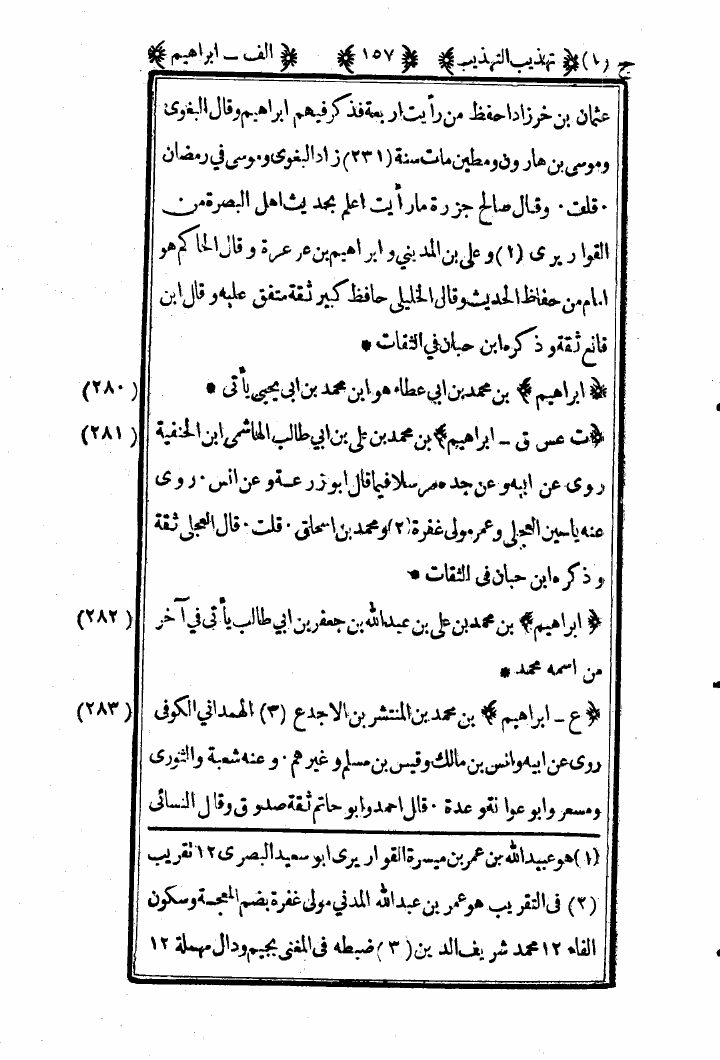 ج (١) ﴿ تهذيب التهذيب ﴾ ﴿ ١٥٧ ﴾ ﴿ الف ـ ابراهيم ﴾
عثمان بن خرزاد احفظ من رأيت اربعة فذكر فيهم ابراهيم وقال البغوى
وموسى بن هارون ومطين مات سنة (٢٣١) زاد البغوى وموسى فى رمضان
٠ قلت ٠ وقال صالح جزرة ما رأيت اعلم بحديث اهل البصرة من
القواريرى (١) وعلى بن المدينى وابراهيم بن عرعرة وقال الحاكم هو
امام من حفاظ الحديث وقال الخليلى حافظ كبير ثقة متفق عليه وقال ابن
قانع ثقة وذكره ابن حبان فى الثقات *
﴿ ابراهيم ﴾ بن محمد بن ابي عطاء هو ابن محمد بن ابى يحيى يأتى * (٢٨٠)
﴿ ت عس ق ـ ابراهيم ﴾ بن محمد بن على بن ابي طالب الهاشمى ابن الحنفية (٢٨١)
روى عن ابيه وعن جده مرسلا فيما قال ابو زرعة وعن انس ٠ روى
عنه ياسين العجلى وعمر مولى غفرة (٢) ومحمد بن اسحاق ٠ قلت ٠ قال العجلى ثقة
وذكره ابن حبان فى الثقات *
﴿ ابراهيم ﴾ بن محمد بن على بن عبدالله بن جعفر بن ابي طالب يأتى فى آخر (٢٨٢)
من اسمه محمد *
﴿ ع ـ ابراهيم ﴾ بن محمد بن المنتشر بن الاجدع (٣) الهمدانى الكوفى (٢٨٣)
روى عن ابيه وانس بن مالك وقيس بن مسلم وغيرهم ٠ وعنه شعبة والثورى
ومسعر وابو عوانة وعدة ٠ قال احمد وابو حاتم ثقة صدوق وقال النسائى
(١) هو عبيدالله بن عمر بن ميسرة القواريرى ابو سعيد البصرى ١٢ تقريب
(٢) فى التقريب هو عمر بن عبدالله المدنى مولى غفرة بضم المعجمة وسكون
الفاء ١٢ محمد شريف الدين (٣) ضبطه فى المغنى بجيم ودال مهملة ١٢